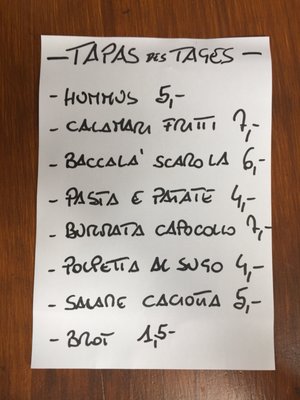 — TAPAS DES TAGES —
- HUMMUS 5,-
- CALAMARI FRITTI 7,-
- BACCALA' SCAROLA 6,-
- PASTA E PATATE 4,-
- BURRATA CAPOCOLLO 7,-
- POLPETTA AL SUGO 4,-
- SALAME CACIOTTA 5,-
- BROT 1,5-